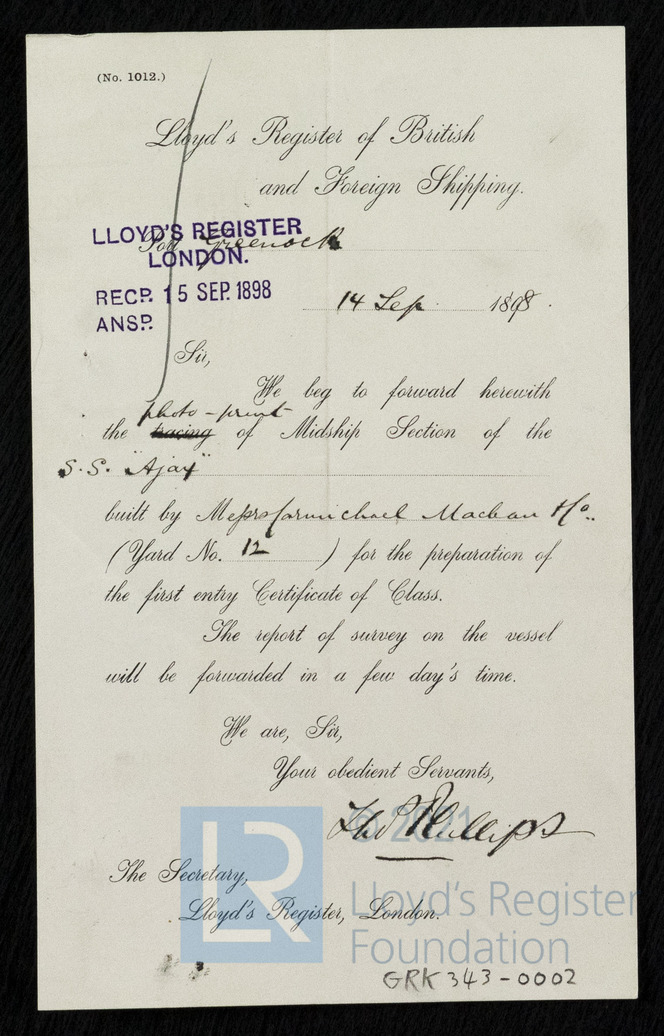 (No. 1012.)
Lloyd's Register of British
and Foreign Shipping.
LLOYD'S REGISTER
LONDON.
Port Greenock
RECD. 15 SEP. 1898
ANSD.
14 Sep 1898.
Sir,
We beg to forward herewith
photo-print
the tracing of Midship Section of the
S.S. "Ajax"
built by Messrs Carmichael Maclean & Co.
(Yard No. 12) for the preparation of
the first entry Certificate of Class.
The report of survey on the vessel
will be forwarded in a few day's time.
We are, Sir,
Your obedient Servants,
Thos Phillips
© 2021
The Secretary,
Lloyd's Register, London.
LR
Lloyd's Register
Foundation
GRK 343-0002